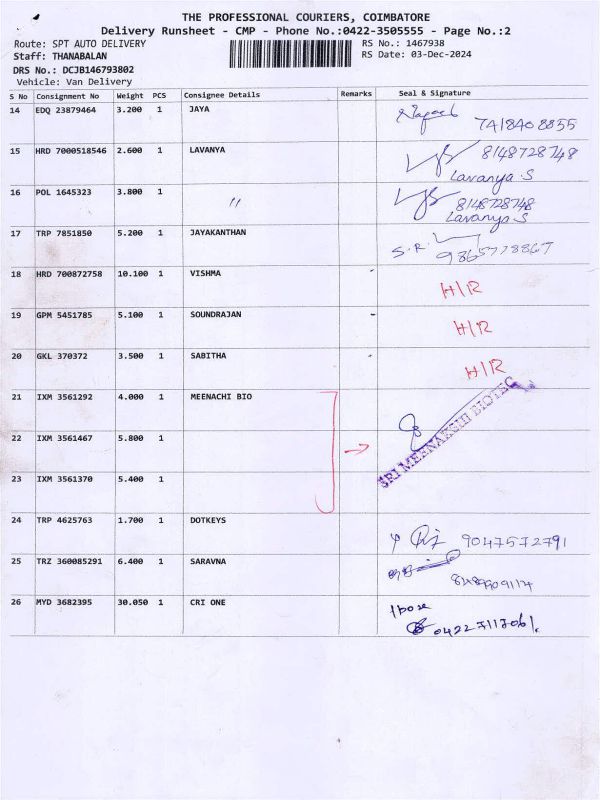 THE PROFESSIONAL COURIERS, COIMBATORE
Delivery Runsheet - CMP - Phone No.:0422-3505555 - Page No.:2
Route: SPT AUTO DELIVERY RS No.: 1467938
Staff: THANABALAN RS Date: 03-Dec-2024
DRS No.: DCJB146793802
Vehicle: Van Delivery
S No Consignment No Weight PCS Consignee Details Remarks Seal & Signature
14 EDQ 23879464 3.200 1 JAYA
7418408855
15 HRD 7000518546 2.600 1 LAVANYA 8148728748
Lavanya S
16 POL 1645323 3.800 1 〃 8148728748
Lavanya S
17 TRP 7851850 5.200 1 JAYAKANTHAN
S.R. 9865778867
18 HRD 700872758 10.100 1 VISHMA H/R
19 GPM 5451785 5.100 1 SOUNDRAJAN H/R
20 GKL 370372 3.500 1 SABITHA H/R
21 IXM 3561292 4.000 1 MEENACHI BIO
22 IXM 3561467 5.800 1 → SRI MEENAKSHI BIOTEC
23 IXM 3561370 5.400 1
24 TRP 4625763 1.700 1 DOTKEYS
9047572791
25 TRZ 360085291 6.400 1 SARAVNA
26 MYD 3682395 30.050 1 CRI ONE 1 box
0422 7117061.